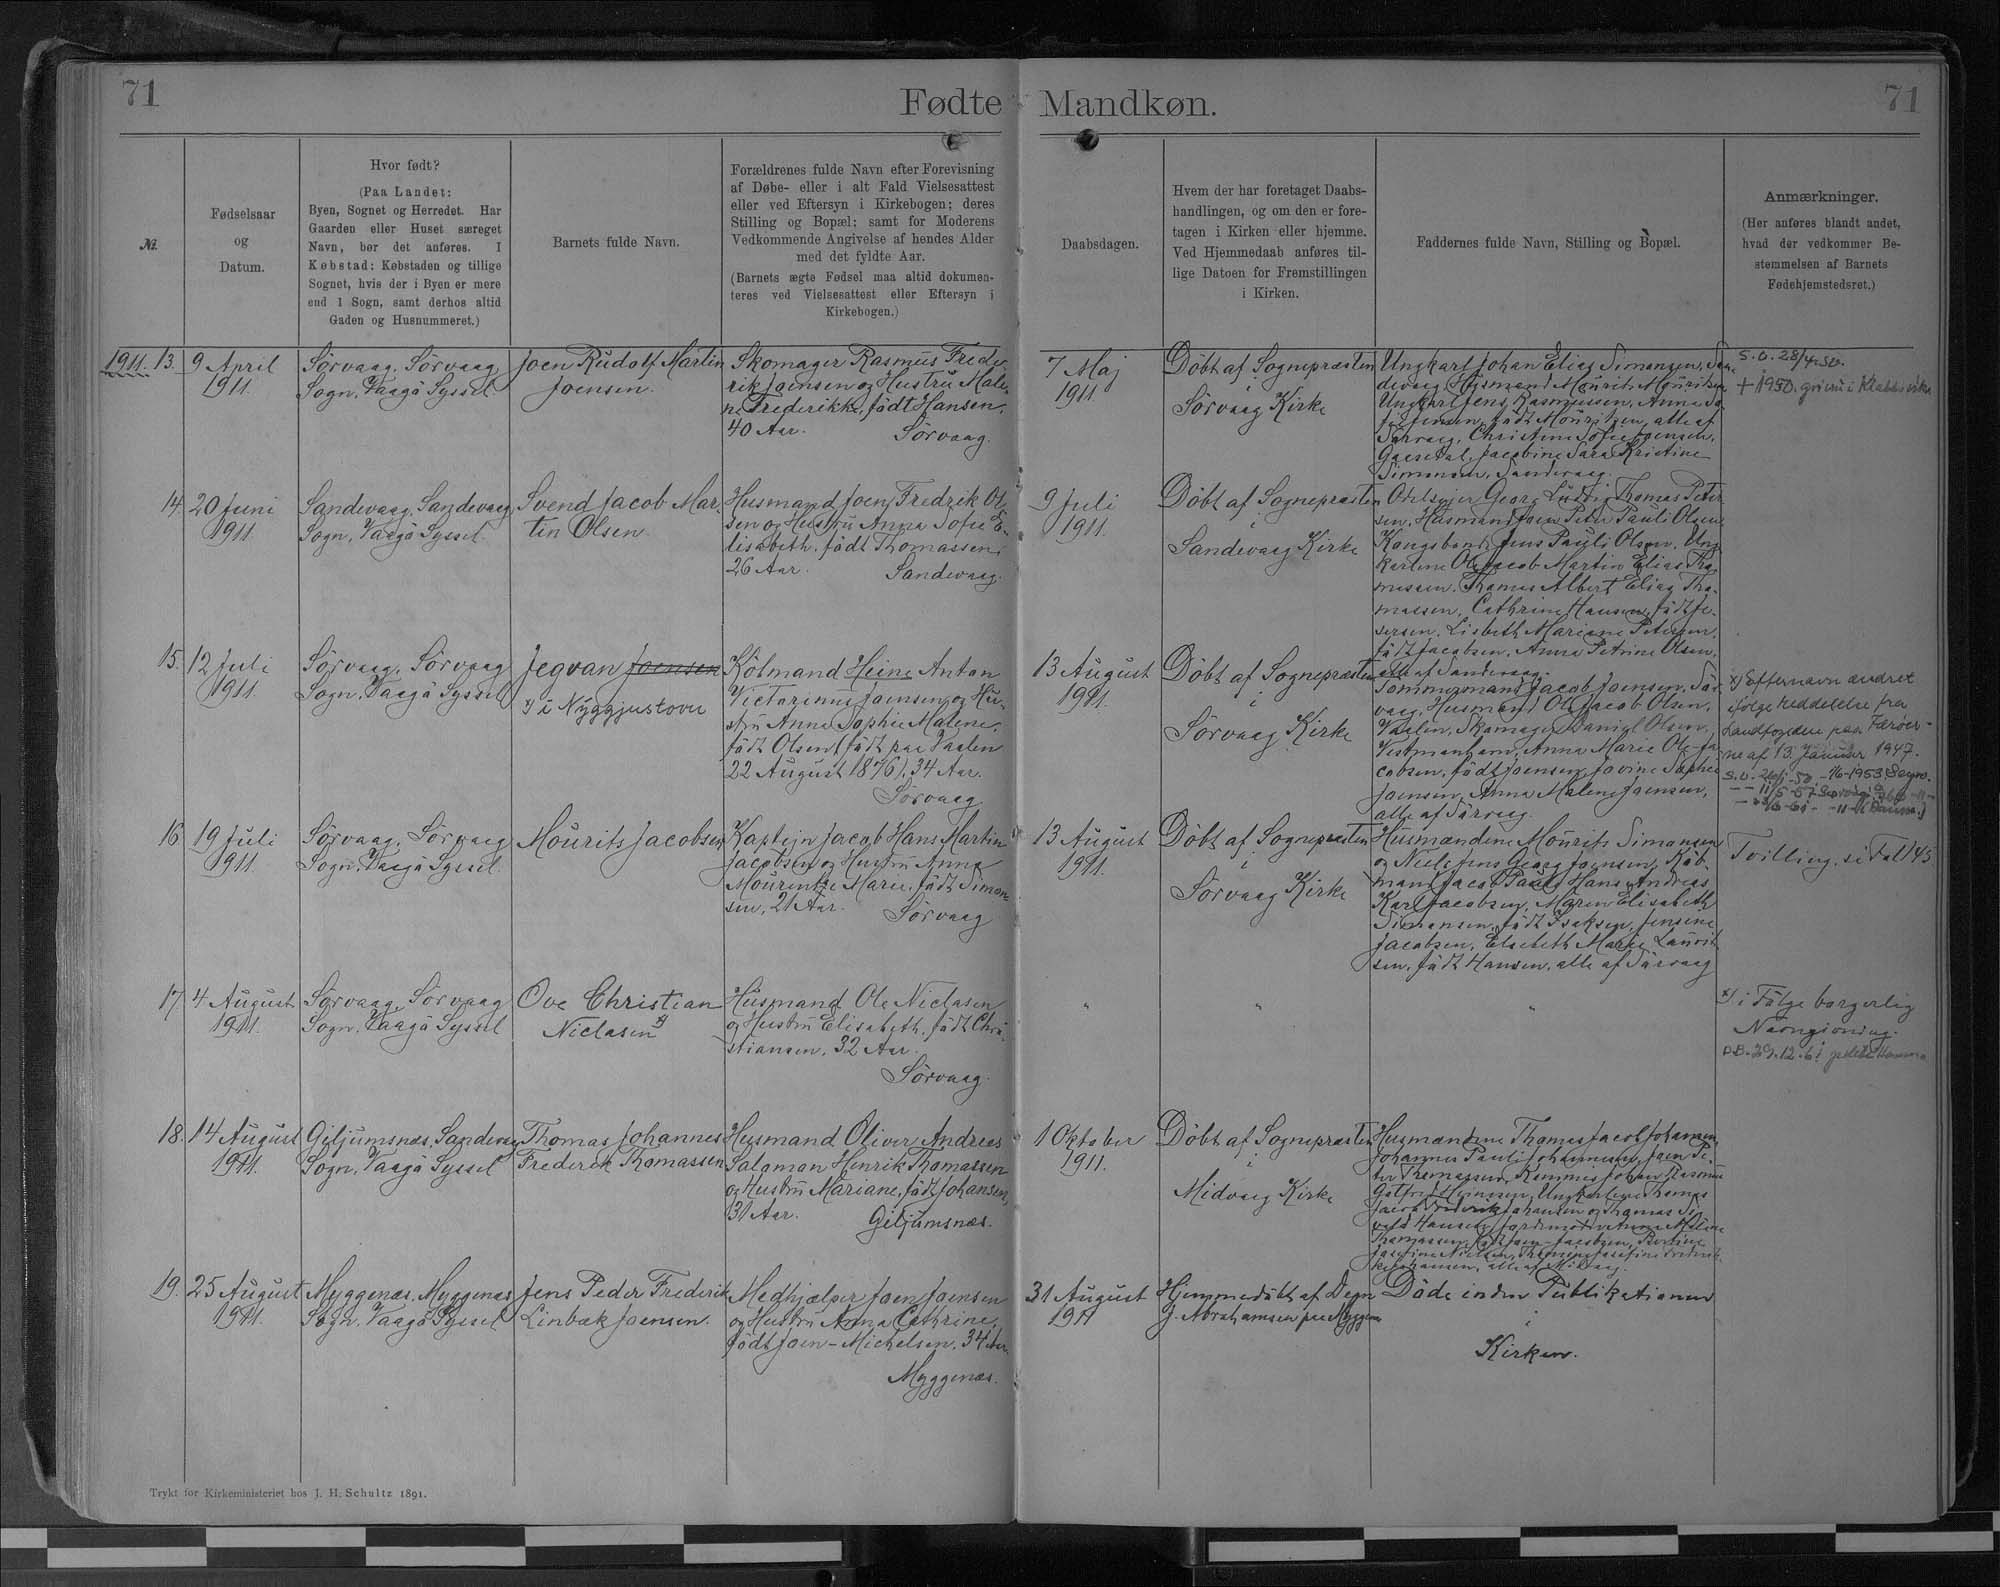 71
Fødte Mandkøn.
71
№.
Fødselsaar
og
Datum.
Hvor født?
(Paa Landet:
Byen, Sognet og Herredet. Har
Gaarden eller Huset særeget
Navn, bør det anføres. I
Købstad: Købstaden og tillige
Sognet, hvis der i Byen er mere
end 1 Sogn, samt derhos altid
Gaden og Husnummeret.)
Barnets fulde Navn.
Forældrenes fulde Navn efter Forevisning
af Døbe- eller i alt Fald Vielsesattest
eller ved Eftersyn i Kirkebogen; deres
Stilling og Bopæl; samt for Moderens
Vedkommende Angivelse af hendes Alder
med det fyldte Aar.
(Barnets ægte Fødsel maa altid dokumen-
teres ved Vielsesattest eller Eftersyn i
Kirkebogen.)
Daabsdagen.
Hvem der har foretaget Daabs-
handlingen, og om den er fore-
tagen i Kirken eller hjemme.
Ved Hjemmedaab anføres til-
lige Datoen for Fremstillingen
i Kirken.
Faddernes fulde Navn, Stilling og Bopæl.
Anmærkninger.
(Her anføres blandt andet,
hvad der vedkommer Be-
stemmelsen af Barnets
Fødehjemstedsret.)
1911. 13.
9 April
1911.
Sørvaag, Sørvaag
Sogn, Vaagø Syssel.
Joen Rudolf Martin
Joensen.
Skomager Rasmus Frede-
rik Joensen og Hustru Male-
ne Frederikke, født Hansen,
40 Aar.
Sørvaag.
7 Maj
1911.
Døbt af Sognepræsten
i
Sørvaag Kirke
Ungkarl Johan Elias Simonsen, San-
devaag, Husmand Mourits Mouritsen
Ungkarl Jens Rasmussen, Anna
født Mouritsen, alle af
Sørvaag, Christine Sofie Joensen,
Gaasedal, Jacobine Sara Kristine
Simonsen, Sandevaag.
S.O. 28/4-50.
+ 1950. i Klaksvik
14.
20 Juni
1911.
Sandevaag, Sandevaag
Sogn, Vaagø Syssel.
Svend Jacob Mar-
tin Olsen.
Husmand Joen Fredrik Ol-
sen og Hustru Anna Sofie E-
lisabeth, født Thomassen,
26 Aar.
Sandevaag.
9 Juli
1911.
Døbt af Sognepræsten
i
Sandevaag Kirke
Odelsejer Georg Ludvig Thomas Peter
sen, Husmand Joen Peter Pauli Olsen
Kongsbonde Jens Pauli Olsen, Ung
karlene Ole Jacob Martin Elias Tho-
massen, Thomas Albert Elias Tho-
massen, Cathrine Hansen, født Je-
spersen, Lisbeth Mariane Petersen,
født Jacobsen, Anna Petrine Olsen,
alle af Sandevaag.
15.
12 Juli
1911.
Sørvaag, Sørvaag
Sogn, Vaagø Syssel
Jegvan Joensen
x) i Nyggjustovu
Købmand Heine Anton
Victorinus Joensen og Hu-
stru Anna Sophie Malene,
født Olsen (født paa Vaalen
22 August 1876), 34 Aar.
Sørvaag
13 August
1911.
Døbt af Sognepræsten
i
Sørvaag Kirke
Tømmermand Jacob Joensen, Sør-
vaag, Husmand Ole Jacob Olsen,
Vaalen, Skomager Daniel Olsen,
Vestmanhavn, Anna Marie Ole-Ja-
cobsen, født Joensen, Javine Sophie
Joensen, Anna Malene Joensen,
alle af Sørvaag.
x) Efternavn ændret
ifølge Meddelelse fra
Landfogeden paa Færøer-
ne af 13. Januar 1947.
16.
19 Juli
1911.
Sørvaag, Sørvaag
Sogn, Vaagø Syssel.
Mourits Jacobsen
Kaptejn Jacob Hans Martin
Jacobsen og Hustru Anna
Mourentze Marie, født Simon-
sen, 21 Aar.
Sørvaag
13 August
1911.
Døbt af Sognepræsten
i
Sørvaag Kirke
Husmændene Mourits Simonsen
og Niels Jens Georg Joensen, Køb-
mand Jacob Pauli Hans Andreas
Karl Jacobsen, Maren Elisabeth
Simonsen, født Isaksen, Jensine
Jacobsen, Elsebeth Marie Laurit-
sen, født Hansen, alle af Sørvaag
Tvilling, si Fol 145
17.
4 August
1911.
Sørvaag, Sørvaag
Sogn, Vaagø Syssel
Ove Christian
Niclasen x)
Husmand Ole Niclasen
og Hustru Elisabeth, født Chri-
stiansen, 32 Aar.
Sørvaag.
"
"
"
x) i Følge borgerlig
Navngivning.
D.B. 29.12.61
18.
14 August
1911.
Giljumsnæs, Sandevaag
Sogn, Vaagø Syssel
Thomas Johannes
Frederik Thomassen
Husmand Oliver Andreas
Salamon Henrik Thomassen
og Hustru Mariane, født Johansen,
31 Aar.
Giljumsnæs.
1 Oktober
1911.
Døbt af Sognepræsten
i
Midvaag Kirke
Husmændene Thomas Jacob Johansen,
Johannes Pauli Johannesen, Joen Pe-
ter Thomassen, Kommis Johan Rasmus
Gotfred Heinesen, Ungkarlene Thomas
Jacob Frederik Johansen og Thomas Si-
Hansen, Jordemor Anna Malene
Thomassen, født Joen-Jacobsen,
Josefine Nielsen,
Johansen, alle af Midvaag.
19.
25 August
1911.
Myggenæs, Myggenæs
Sogn, Vaagø Syssel
Jens Peder Frederik
Linbæk Joensen.
Medhjælper Joen Joensen
og Hustru Anna Cathrine,
født Joen-Michelsen, 34 Aar.
Myggenæs.
31 August
1911
Hjemmedøbt af Degn
J. Abrahamsen paa Myggenæs
Døde inden Publikationen
i
Kirken.
Trykt for Kirkeministeriet hos J. H. Schultz 1891.